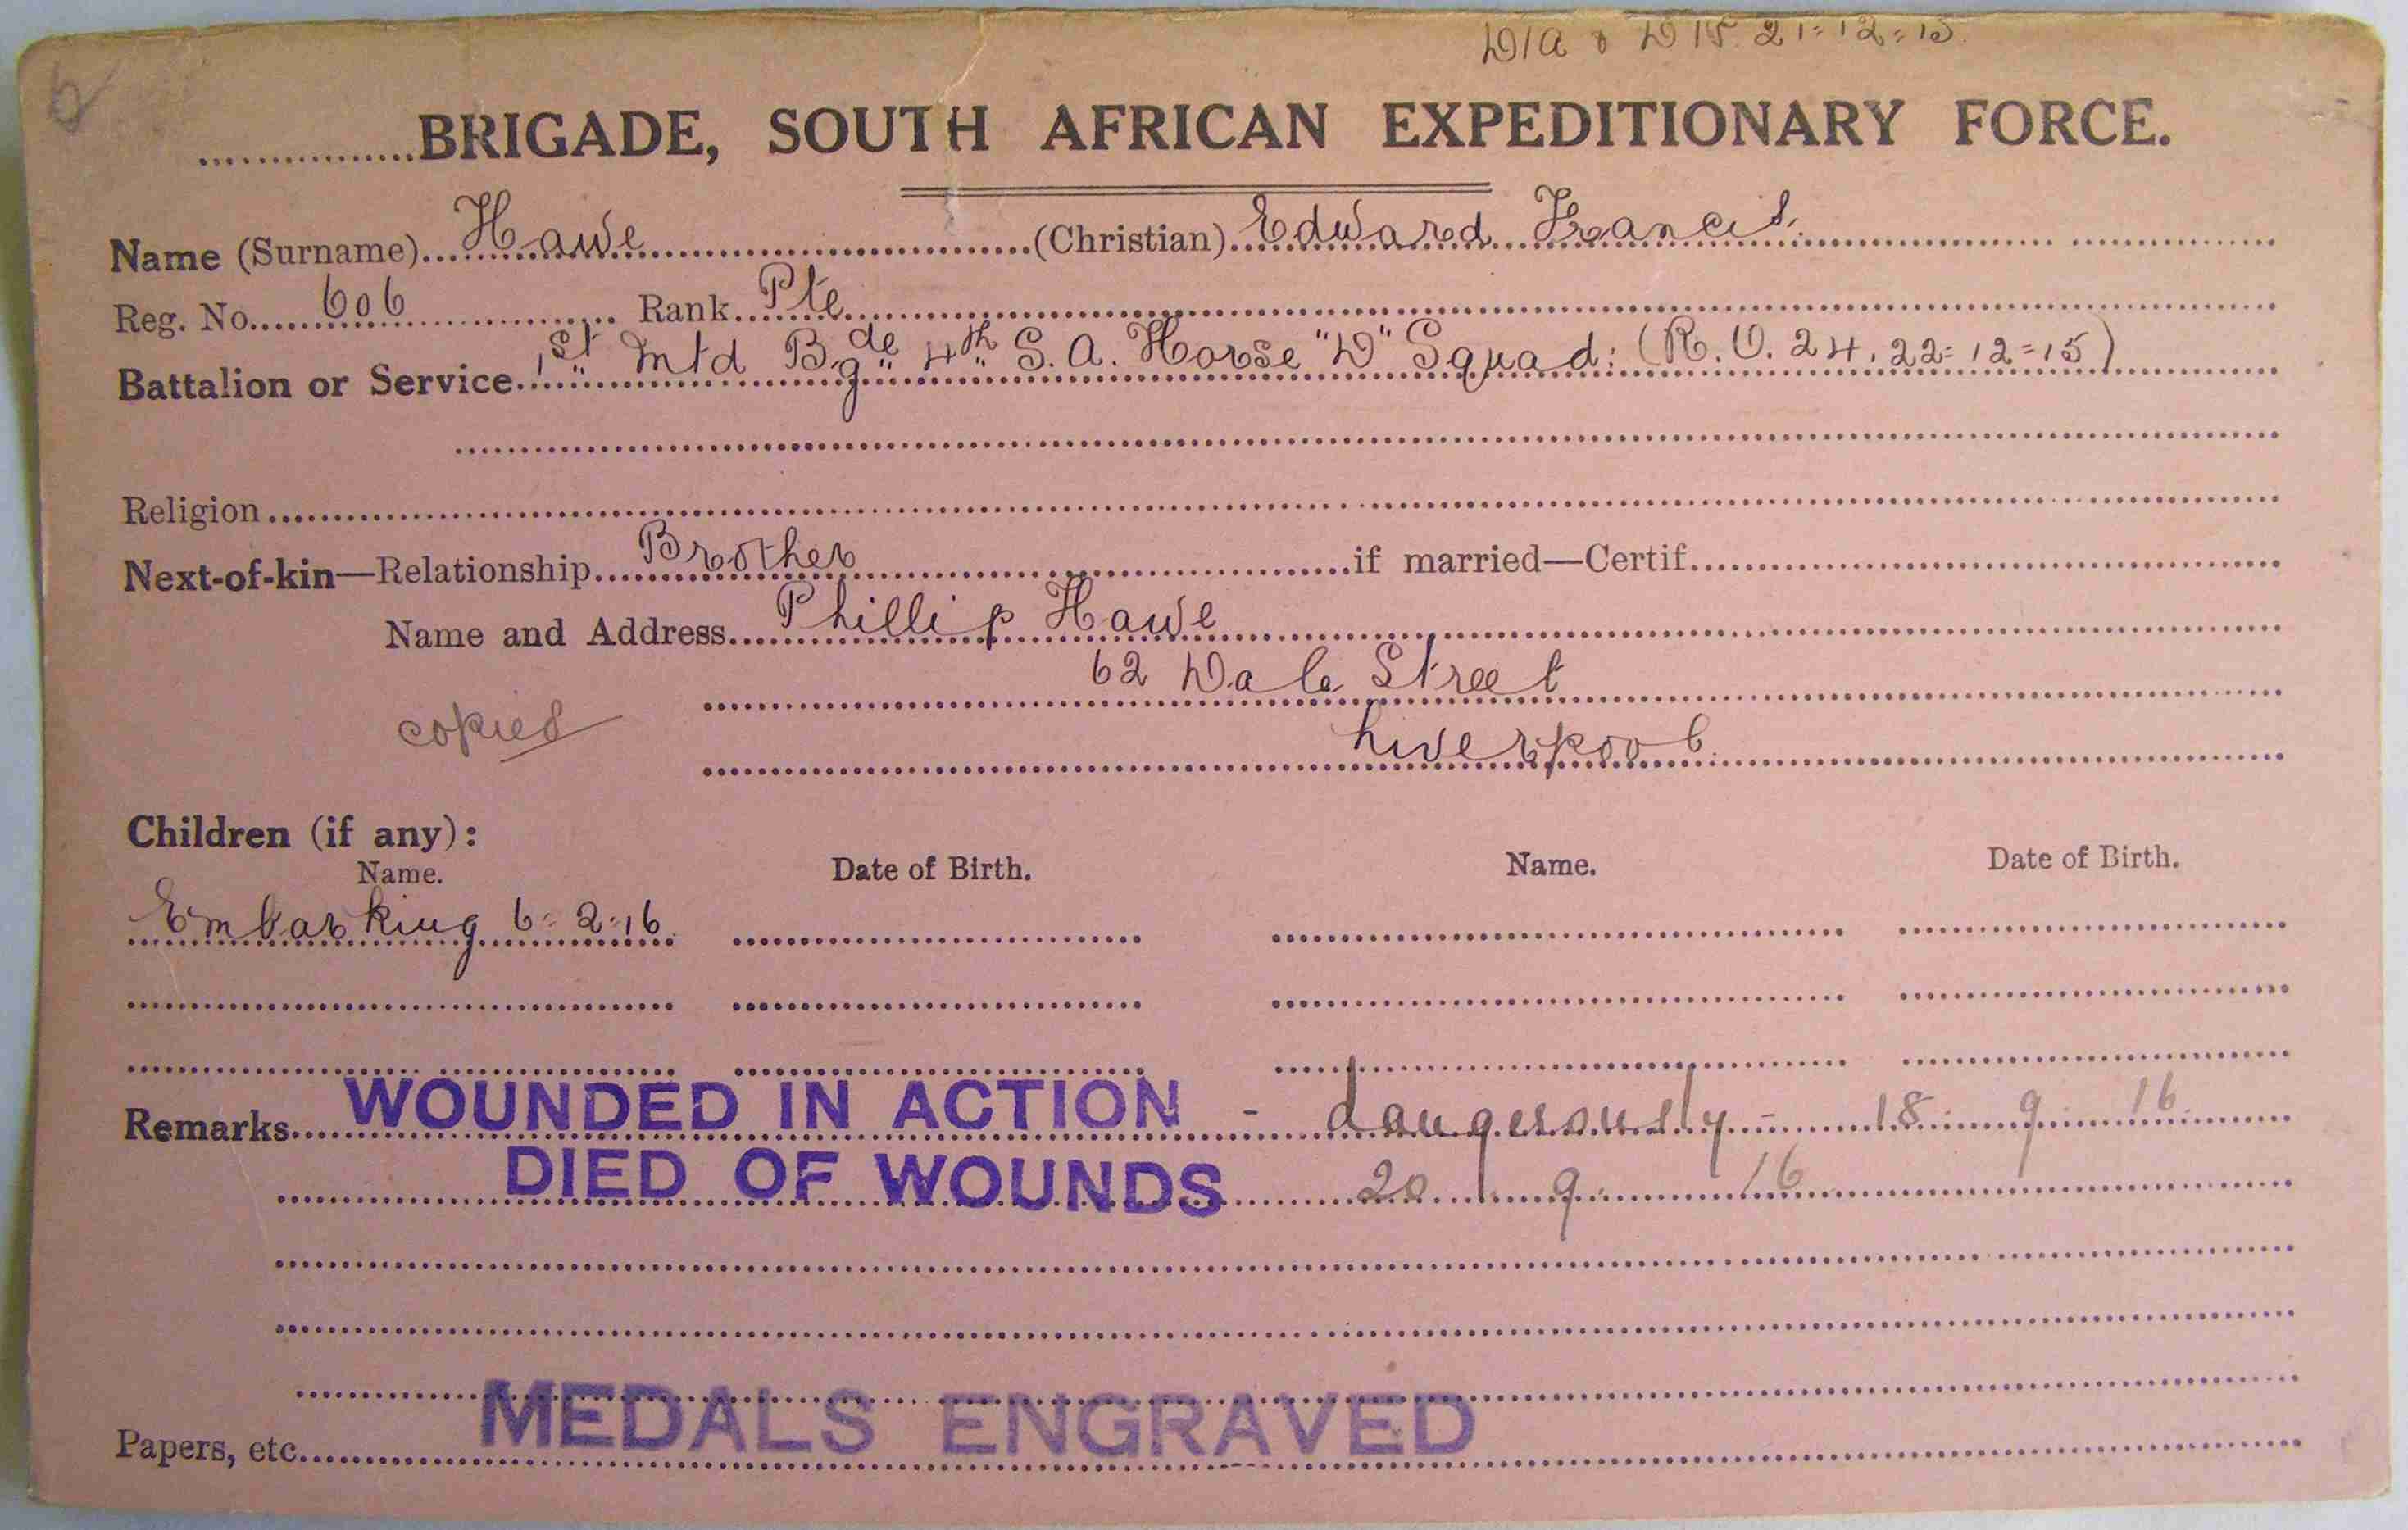 D/A & D/S 21=12=15.
BRIGADE, SOUTH AFRICAN EXPEDITIONARY FORCE.
Name (Surname) Hawe (Christian) Edward Francis.
Reg. No. 606 Rank Pte
Battalion or Service 1st Mtd Bgde 4th S.A. Horse "D" Squad: (R.O. 24, 22=12=15)
Religion
Next-of-kin—Relationship Brother if married—Certif.
Name and Address Phillip Hawe
62 Dale Street
copied
Liverpool.
Children (if any):
Name. Date of Birth. Name. Date of Birth.
Embarking 6=2=16.
Remarks WOUNDED IN ACTION - dangerously - 18. 9. 16.
DIED OF WOUNDS 20. 9. 16
MEDALS ENGRAVED
Papers, etc.